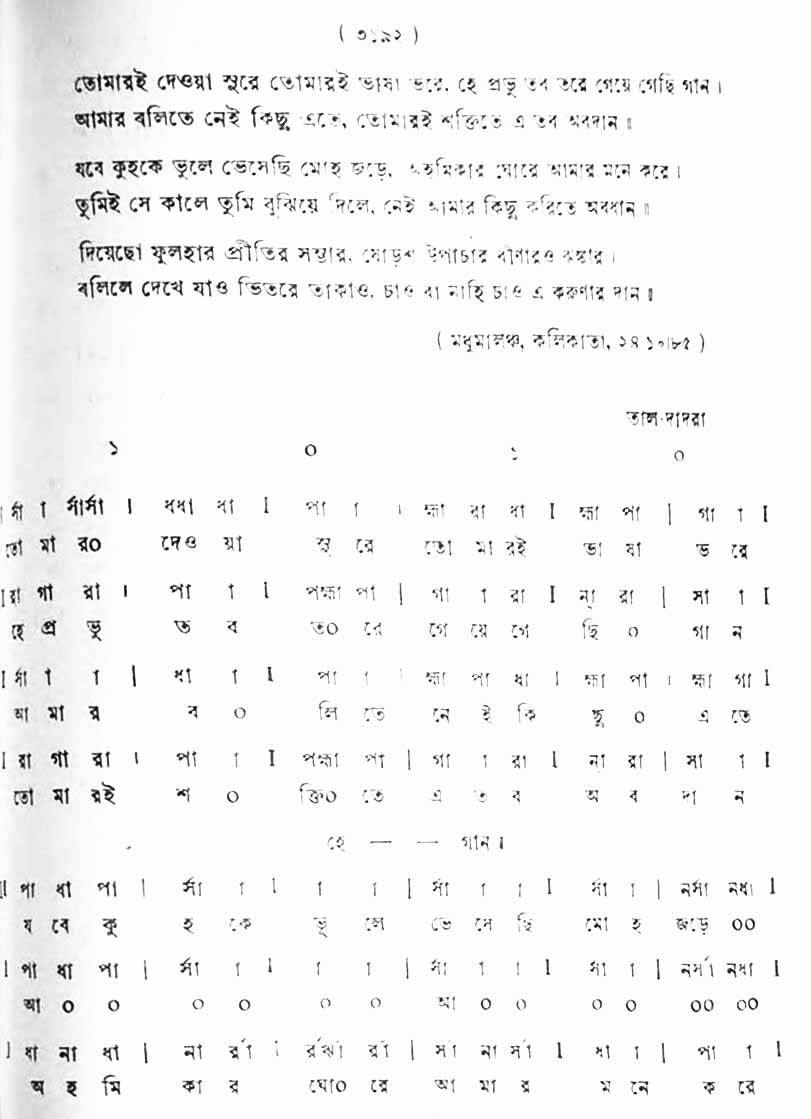 ( ৩১৯২ )
তোমারই দেওয়া সুরে তোমারই ভাষা ভরে, হে প্রভু তব তরে গেয়ে গেছি গান ।
আমার বলিতে নেই কিছু এতে, তোমারই শক্তিতে এ তব অবদান ॥
যবে কুহকে ভুলে ভেসেছি মোহ জড়ে, অহমিকার ঘোরে আমার মনে করে ।
তুমিই সে কালে তুমি বুঝিয়ে দিলে, নেই আমার কিছু করিতে অবধান ॥
দিয়েছো ফুলহার প্রীতির সম্ভার, ষোড়শ উপাচার বীণারও ঝঙ্কার ।
বলিলে দেখে যাও ভিতরে তাকাও, চাও বা নাহি চাও এ করুণার দান ॥
( মধুমালঞ্চ, কলিকাতা, ২৪ ১০।৮৫ )
তাল-দাদরা
১ ০ ১ ০
। র্সা া র্সার্সা । ধধা ধা I পা া । হ্মা রা ধা I হ্মা পা | গা া I
তো মা র০ দেও য়া সু রে তো মা রই ভা ষা ভ রে
|রা গা রা । পা া I পহ্মা পা | গা া রা I না্ রা | সা া I
হে প্র ভু ত ব ত০ রে গে য়ে গে ছি ০ গা ন
| র্সা া া | ধা া I পা া । হ্মা পা ধা । হ্মা পা । হ্মা গা I
আ মা র ব ০ লি তে নে ই কি ছু ০ এ তে
| রা গা রা । পা া I পহ্মা পা | গা া রা I না্ রা | সা া I
তো মা রই শ ০ ক্তি০ তে এ ত ব অ ব দা ন
হে — — গান ॥
|I পা ধা পা | র্সা া I া া | র্সা া া I র্সা া | নর্সা নধা I
য বে কু হ কে ভু লে ভে সে ছি মো হ জড়ে ০০
I পা ধা পা | র্সা া I া া | র্সা া া I র্সা া | নর্সা নধা I
আ ০ ০ ০ ০ ০ ০ আ ০ ০ ০ ০ ০০ ০০
I ধা না ধা | না র্রা । র্রর্ঝা র্রা | র্সা না র্সা I ধা া | পা া I
অ হ মি কা র ঘো০ রে আ মা র ম নে ক রে